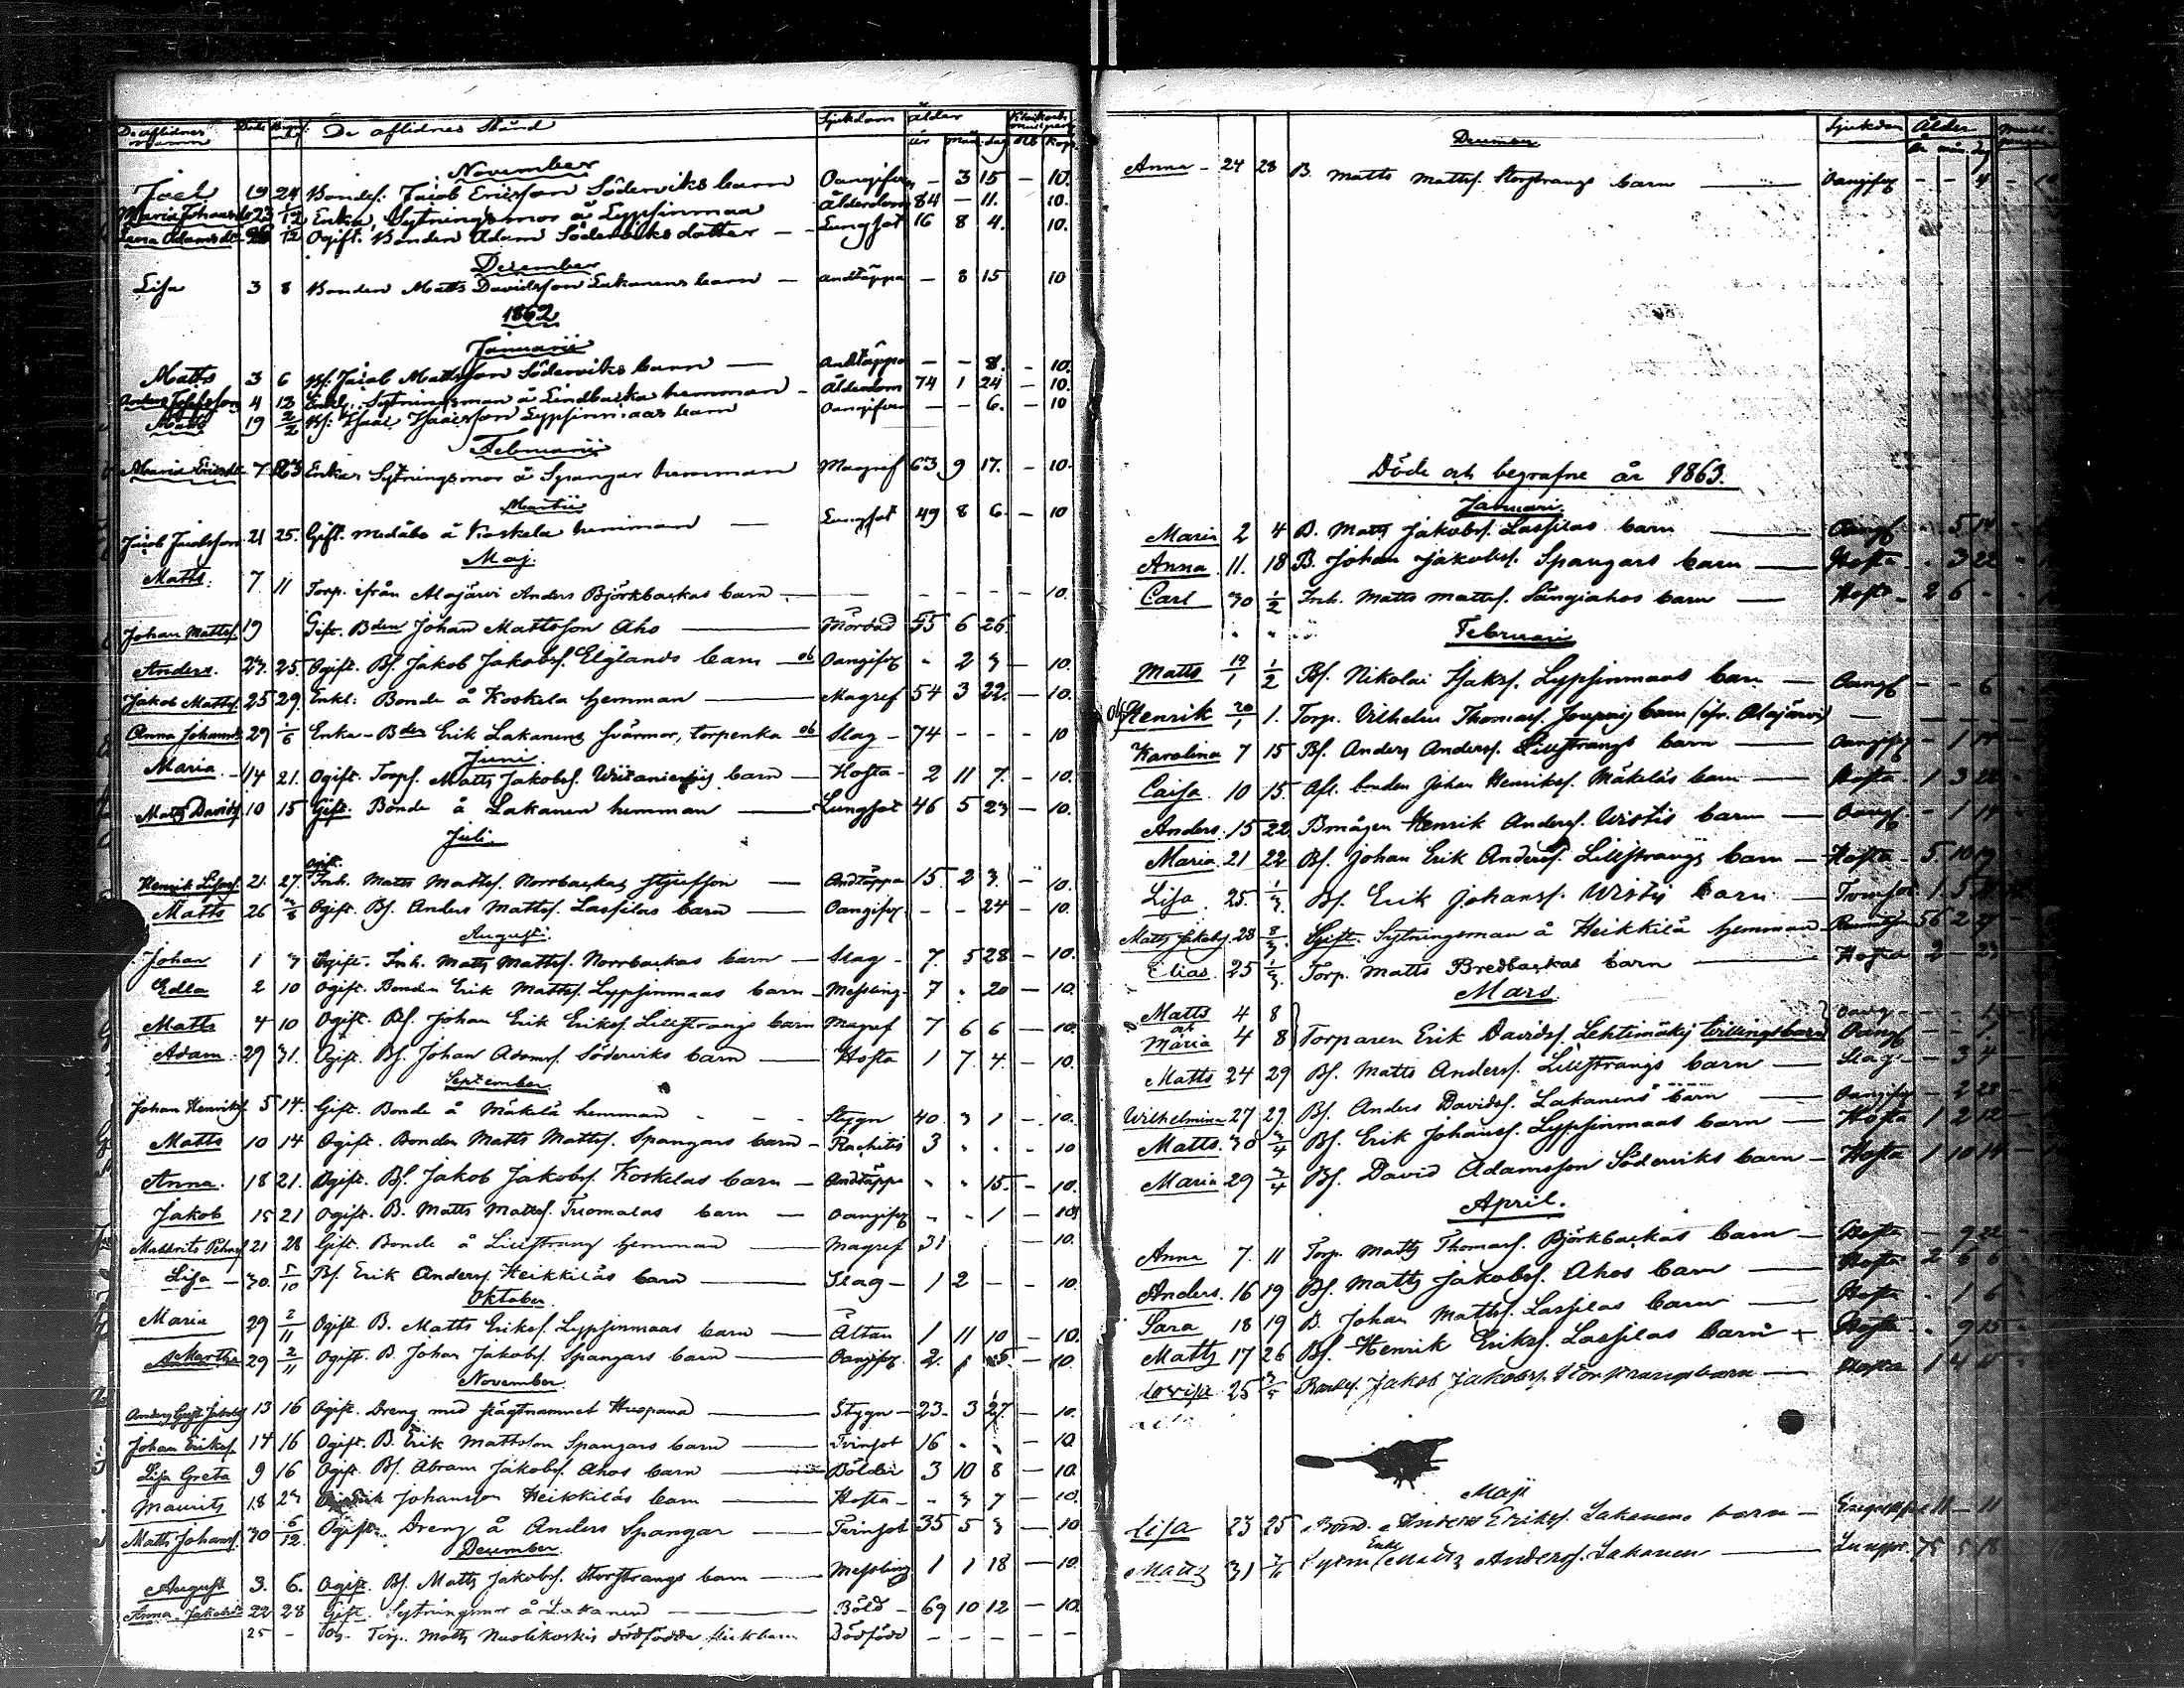 De aflidnes namn Döde Begrafne De aflidnes Stånd Sjukdom Ålder år mån. dag Rb Kop.
November
Joel 19 24 Bondes: Jacob Ericsson Söderviks barn Oangifven - 3 15 - 10.
Maria Johansdr 23 1/12 Enka, Sytningsmor å Lyhsinmaa Ålderdom 84 - 11. 10.
Lena Adamsdr 1/12 Ogift. Bonden Adam Söderviks dotter - Lungsot 16 8 4. 10.
December
Lisa 3 8 Bonden Matts Davidsson Lakanens barn - andtäppa - 8 15 10
1862
Januarii
Matts 3 6 Bs: Jacob Mattsson Söderviks barn - Andtäppa - - 8. - 10.
Anders 4 13 Enkl. Sytningsman å Lindbacka hemman - Ålderdom 74 1 24 - 10.
Matts 19 2/2 Bs: Isaac Isaacsson Lyhsinmaas barn Oangifven - - 6. - 10
Februarii
Maria Ericsdr 7 23 Enka, Sytningsmor å Spangar hemman Magref 63 9 17. - 10.
Martii
Jacob Jacobsson 21 25. Gift. medåbo å Koskela hemman - Lungsot 49 8 6 - 10
Maj.
Matts. 7. 11 Torp. ifrån Alajärvi Anders Björkbackas barn - - - - - - 10.
Johan Mattss. 19 Gift. Bden Johan Mattsson Aho - Mördad 55 6 26
Anders. 23. 25. Ogift. Bs. Jakob Jakobss. Elglands barn - Oangifv - 2 3 - 10.
Jakob Mattss. 25 29 Enkl: Bonde å Koskela hemman - Magref 54 3 22. - 10.
Anna Johansd. 29 1/6 Enka - Bden Erik Lakanens svärmor, torpenka Slag - 74 - - - 10
Juni.
Maria - 14 21. Ogift. Torps. Matts Jakobss. barn - Hosta - 2 11 7. - 10.
Matts Davidss. 10 15 Gift. Bonde å Lakanen hemman - Lungsot 46 5 23 - 10.
Juli.
Henrik 21. 27. Ogift. Inh. Matts Mattss. Norrbackas styfson - Andtäppa 15. 2 3. - 10.
Matts 26 3/8 Ogift. Bs. Anders Mattss. Lassilas barn - Oangifv. - - 24 - 10.
Augusti.
Johan 1 3 Ogift. Inh. Matts Mattss. Norrbackas barn - Slag - 7. 5 28 - 10.
Edla 2 10 Ogift. Bonden Erik Mattss. Lyhsinmaas barn - Messling - 7 - 20 - 10.
Matts 4 10 Ogift. Bs. Johan Erik Erikss. Lillstrangs barn Magref 7 6 6 - 10.
Adam 29 31. Ogift. Bs. Johan Adamss. Söderviks barn - Hosta 1 7. 4. - 10.
September
Johan Henrikss. 5 14. Gift. Bonde å Mäkelä hemman - - - Stygn 40. 3 1 - 10.
Matts 10 14 Ogift. Bonden Matts Mattss. Spangars barn - Rachitis 3 - - - 10
Anna. 18 21. Ogift. Bs. Jakob Jakobss. Koskelas barn - Andtäppa - - 15. - 10.
Jakob 15 21 Ogift. B. Matts Mattss. Tuomalas barn - Oangifv - - 1 - 10
21 28 Gift. Bonde å Lillstrang hemman - Magref 31 - 10.
Lisa - 30. 5/10 Bs. Erik Anderss. Heikkiläs barn - Slag - 1 2 - - 10.
Oktober
Maria 29 2/11 Ogift. B. Matts Erikss. Lyhsinmaas barn - Ältan 1 11 10 - 10.
Martha 29 2/11 Ogift. B. Johan Jakobss. Spangars barn - Oangifv. 2. - 10.
November
Anders Gust. Jakobss. 13 16 Ogift. Dreng med slägtnamnet Huspana - Stygn - 23. 3 27. - 10.
Johan Erikss. 14 16 Ogift. B. Erik Mattsson Spangars barn - Tvinsot 16 - - - 10
Lisa Greta 9 16 Ogift. Bs. Abram Jakobss. Ahos barn - Bölder 3 10 8 - 10.
Maurits 18 23 Johansson Heikkiläs barn - Hosta - - 3 7 - 10.
Matts Johanss. 30 6/12 Ogift. Dreng å Anders Spangar - Tvinsot 35 5 3 - 10
December.
August 3. 6. Ogift. Bs. Matts Jakobss. Storstrangs barn - Messling 1 1 18 - 10.
Anna Jakobsdr 22 28 Gift. Sytningsmor å Lakanen - Böld - 69 10 12 - 10.
25 - Torp. Matts Nuolikoskis dödfödda flickbarn Dödfödd - - - - -
December Sjukdom Ålder år mån. dag
Anna - 24 28 B. Matts Mattss. Storstrangs barn - Oangifv - - 4 -
Döde och begrafne år 1863.
Januari.
Maria 2 4 B. Matts Jakobss. Lassilas barn - Oangf - 5 14
Anna 11. 18 B. Johan Jakobss. Spangars barn - Hosta - 3 22
Carl 30 1/2 Inh. Matts Mattss. Sångiahos barn - Hosta - 2 6 -
Februari
Matts 19/1 1/2 Bs. Nikolai Isakss. Lyhsinmaas barn - Oangf - - 6
Henrik 20/1 1. Torp. Vilhelm Thomass. barn (ifr. Alajärvi) - - - -
Karolina 7 15 Bs. Anders Anderss. Lillstrangs barn - Oangifv - 1 14
Caisa. 10 15. Afl. bonden Johan Henrikss. Mäkeläs barn - Hosta 1 3 22
Anders. 15 22. Bmågen Henrik Anderss. Wistis barn - Oangf. - 1 14
Maria 21 22 Bs. Johan Erik Anderss. Lillstrangs barn - Hosta - 5. 10 19
Lisa 25. 1/3 Bs. Erik Johanss. Wistis barn - Tvinsot 1 5
Matts Jakobss. 28 8/3. Gift. Sytningsman å Heikkilä hemman 56 2
Elias. 25 1/3 Torp. Matts Bredbackas barn - Hosta 2 - 23
Mars.
Matts 4 8 Oangf - - 
och
Maria 4 8 Torparen Erik Davidss. Lehtimäkis tvillingsbarn Oangf - -
Matts 24 29 Bs. Matts Anderss. Lillstrangs barn - Slag - - 3 4
Wilhelmina 27 29. Bs. Anders Davidss. Lakanens barn - Oangifv - 2 28
Matts. 30 3/4 Bs. Erik Johanss. Lyhsinmaas barn - Hosta 1 2 12
Maria 29 3/4 Bs. David Adamsson Söderviks barn - Hosta 1 10 14
April.
Anna 7. 11 Torp. Matts Thomass. Björkbackas barn - Hosta - 9 22
Anders. 16 19 Bs. Matts Jakobss. Ahos barn - Hosta 2 6 6
Sara 18 19 B. Johan Mattss. Lassilas barn - Hosta - 1 6
Matts 17 26 Bs. Henrik Erikss. Lassilas barn Hosta - 9 15
Lovisa 25 3/5 Bondes. Jakob Jakobss. Storstrangs barn - Hosta 1 4
Maji
Lisa 23 25 Bond. Anders Erikss. Lakanens barn - 11 - 11
Matts 31 Enkl. Sytn. Matts Anderss. Lakanen - Lungs. 75 5 18